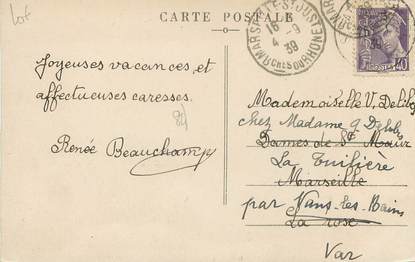 Lot
CARTE POSTALE
MARSEILLE-ST JUST
16
4 - 9
39
BCHES DU RHÔNE
40
Joyeuses vacances et
affectueuses caresses.
Renée Beauchamp
Mademoiselle V. Delbos
chez Madame G Delbos
Dames de St Maur
La Tuilière
Marseille
par Nans-les-Bains
La rose
Var